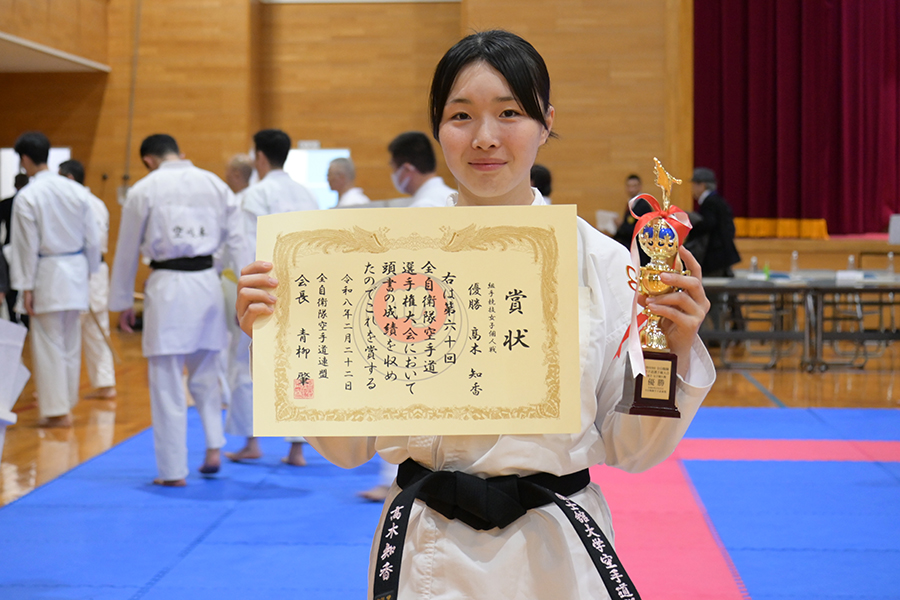 賞状
組手競技女子個人戦
優勝 高木 知香
右は第六十回
全自衛隊空手道
選手権大会において
頭書の成績を収め
たのでこれを賞する
令和八年二月二十二日
全自衛隊空手道連盟
会長 青柳 肇
優勝
高木知香
館大学空手道